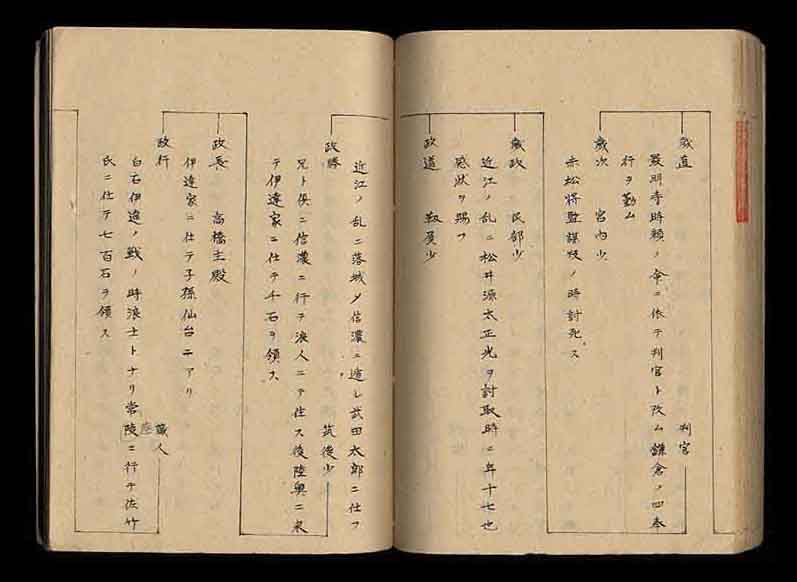 義直　判官
最明寺時頼ノ命ニ依テ判官ト改ム鎌倉ノ四奉
行ヲ勤ム
義次　宮内少
赤松将監謀叛ノ時討死ス
義政　民部少
近江ノ乱ニ松井源太正光ヲ討取時ニ年十七也
感状ヲ賜フ
政道　靱屓少
近江ノ乱ニ落城〆信濃ニ逃レ武田太郎ニ仕フ
政勝　筑後少
兄ト倶ニ信濃ニ行テ浪人ニテ住ス後陸奥ニ来
テ伊達家ニ仕テ千石ヲ領ス
政長　高橋主殿
伊達家ニ仕テ子孫仙台ニアリ
政行　蔵人
白石伊達ノ戦ノ時浪士トナリ常陸ニ行テ佐竹
氏ニ仕テ七百石ヲ領ス